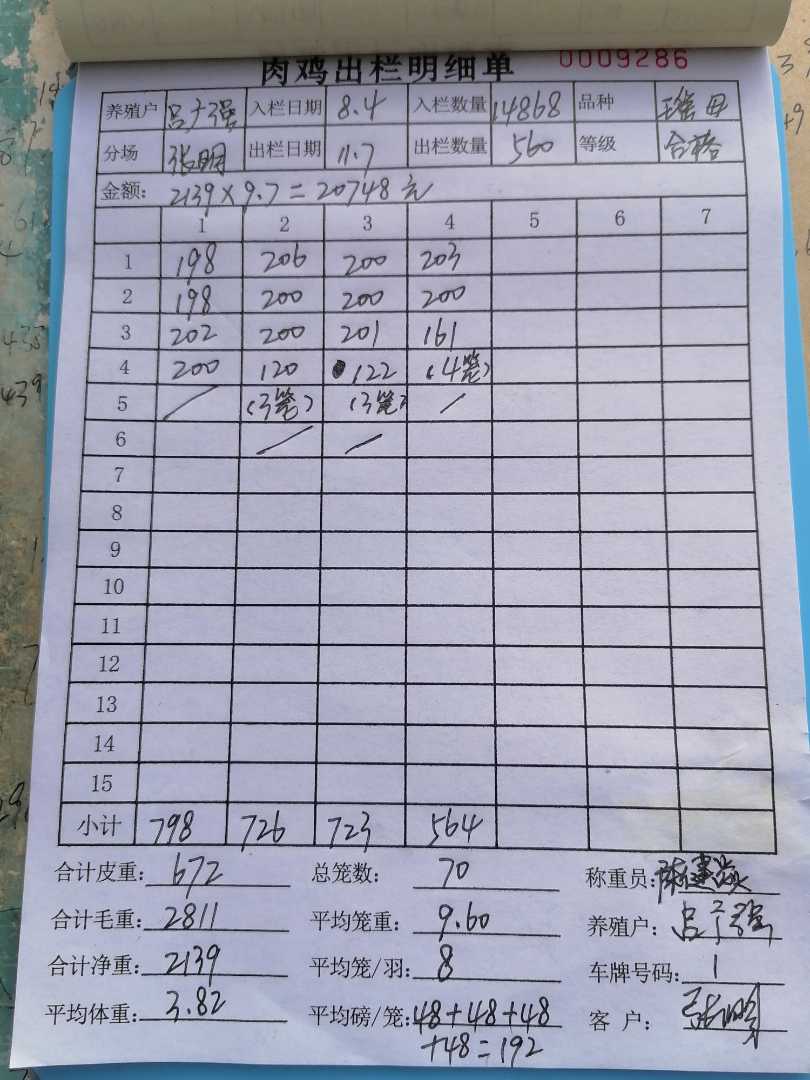 肉鸡出栏明细单 0009286
养殖户 入栏日期 8.4 入栏数量 14868 品种
分场 张明 出栏日期 11.7 出栏数量 560 等级 合格
金额: 2139×9.7=20748元
1 2 3 4 5 6 7
1 198 206 200 203
2 198 200 200 200
3 202 200 201 161
4 200 120 122 (4笼)
5 (3笼) (3笼)
6
7
8
9
10
11
12
13
14
15
小计 798 726 723 564
合计皮重: 672 总笼数: 70 称重员:
合计毛重: 2811 平均笼重: 9.60 养殖户:
合计净重: 2139 平均笼/羽: 8 车牌号码: 1
平均体重: 3.82 平均磅/笼: 48+48+48 客户:
+48=192